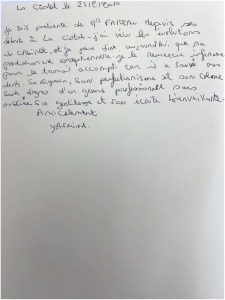 La Ciotat le 21/12/2020.
Je suis patiente de Mr depuis ses
débuts à La Ciotat - j'ai vécu les évolutions
du cabinet, et je peux dire aujourd'hui que sa
est exceptionnelle je le remercie infiniment
pour le travail accompli car il a sauvé mes
dents sa rigueur, son perfectionnisme et son calme
sont dignes d'un grand professionnel sans
oublier sa gentillesse et son écoute bienveillante
Amicalement
YASMINA.